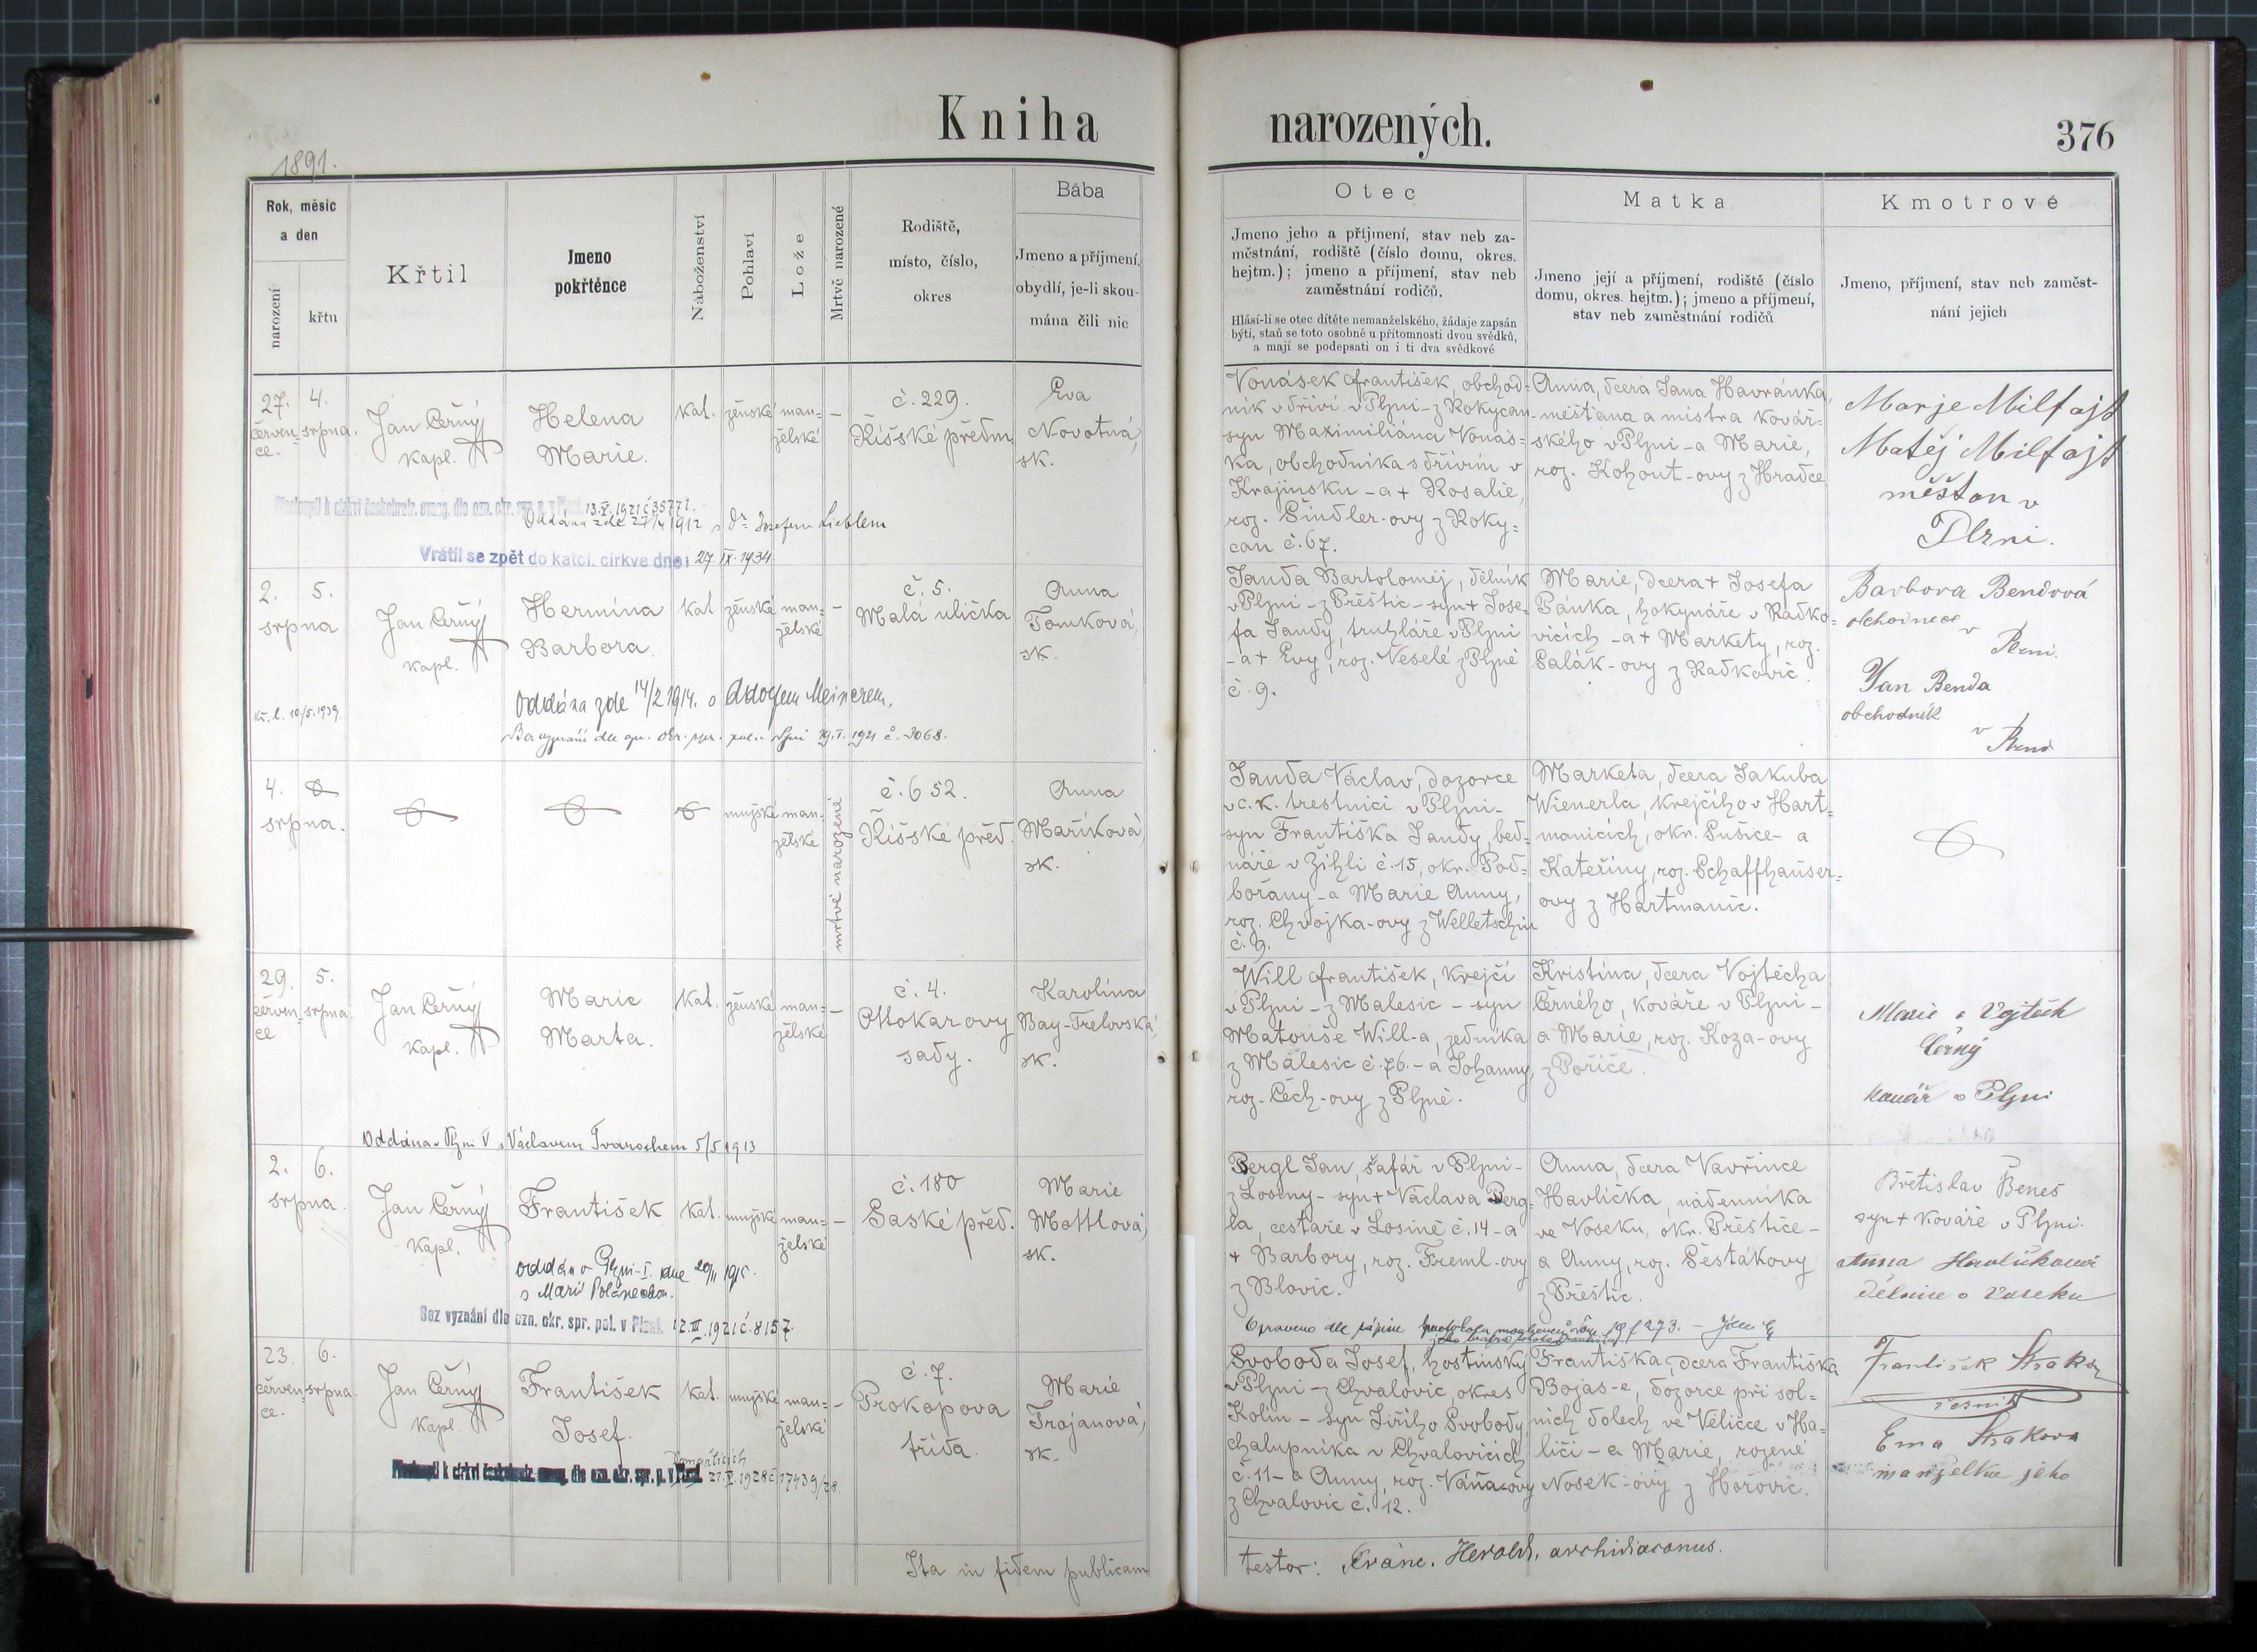 Kniha narozených.
376
1891.
Rok, měsíc
a den
narození
křtu
Křtil
Jmeno
pokřtěnce
Náboženství
Pohlaví
Lože
Mrtvě narozené
Rodiště,
místo, číslo,
okres
Bába
Jmeno a příjmení,
obydlí, je-li skou-
mána čili nic
Otec
Jmeno jeho a příjmení, stav neb za-
městnání, rodiště (číslo domu, okres.
hejtm.); jmeno a příjmení, stav neb
zaměstnání rodičů.
Hlásí-li se otec dítěte nemanželského, žádaje zapsán
býti, staň se toto osobně u přítomnosti dvou svědků,
a mají se podepsati on i ti dva svědkové
Matka
Jmeno její a příjmení, rodiště (číslo
domu, okres. hejtm.); jmeno a příjmení,
stav neb zaměstnání rodičů
Kmotrové
Jmeno, příjmení, stav neb zaměst-
nání jejich
27.
červen-
ce.
4.
srpna.
Jan Černý
kapl.
Helena
Marie.
kat.
ženské
man-
želské
–
č. 229.
Říšské předm.
Eva
Novotná,
sk.
13.V.1921 č 35772.
Oddána zde 27/4 1912 s Dr. Josefem Lieblem
Vrátil se zpět do katol. církve dne 27. IX. 1934
Vonásek František, obchod-
ník v dříví v Plzni - z Rokycan
syn Maximiliána Vonás-
ka, obchodníka s dřívím v
Krajinsku - a + Rosalie,
roz. Šindler-ovy z Roky-
can č. 67.
Anna, dcera Jana Havránka,
měšťana a mistra kovář-
ského v Plzni - a Marie,
roz. Kohout-ovy z Hradce
Marje Milfajt
Matěj Milfajt
měšťan v
Plzni.
2.
srpna
5.
Jan Černý
kapl.
Hermína
Barbora.
kat
ženské
man-
želské
–
č. 5.
Malá ulička
Anna
Tomková,
sk.
10/5.1939.
Oddána zde 14/2 1914. s Adolfem Meixnerem.
Bez vyznání dle ozn. okr. spr. pol. v Plzni 19.I.1921 č. 3068.
Janda Bartoloměj, dělník
v Plzni - z Přeštic - syn + Jose-
fa Jandy, truhláře v Plzni
- a + Evy, roz. Veselé z Plzně
č. 9.
Marie, dcera + Josefa
Pánka, hokynáře v Radko-
vicích - a + Markety, roz.
Salák-ovy z Radkovic.
Barbora Bendová
obchodnice
v
Plzni.
Jan Benda
obchodník
v
Plzni
4.
srpna.
mužské
man-
želské
mrtvě narozené
č. 652.
Říšské před.
Anna
Maříková,
sk.
Janda Václav, dozorce
v c. k. trestnici v Plzni -
syn Františka Jandy, bed-
náře v Žihli č. 15, okr. Pod-
bořany - a Marie Anny,
roz. Chvojka-ovy z Welletschin
č. 9.
Marketa, dcera Jakuba
Wienerla, krejčího v Hart-
manicích, okr. Sušice - a
Kateřiny, roz. Schaffhauser-
ovy z Hartmanic.
29.
červen-
ce
5.
srpna.
Jan Černý
kapl.
Marie
Marta.
kat.
ženské
man-
želské
–
č. 4.
Ottokarovy
sady.
Karolína
Bay-Trelovská,
sk.
Oddána v Plzni V s Václavem Tvarochem 5/5 1913
Will František, krejčí
v Plzni - z Malesic - syn
Matouše Will-a, zedníka
z Malesic č. 76. - a Johanny,
roz. Čech-ovy z Plzně.
Kristina, dcera Vojtěcha
Černého, kováře v Plzni -
a Marie, roz. Koza-ovy
z Poříčě.
Marie a Vojtěch
Černý
kovář v Plzni
2.
srpna.
6.
Jan Černý
kapl.
František
kat.
mužské
man-
želské
–
č. 180
Saské před.
Marie
Mottlová,
sk.
oddán v Plzni-I. dne 20/II 1915.
s Marií Poláneckou.
Bez vyznání dle ozn. okr. spr. pol. v Plzni. 12.III.1921 č. 8157
Pergl Jan, šafář v Plzni -
z Losiny - syn + Václava Perg-
la, cestaře v Losině č. 14 - a
+ Barbory, roz. Freml-ovy
z Blovic.
Anna, dcera Vavřince
Havlíčka, nádenníka
ve Voseku, okr. Přeštice -
a Anny, roz. Šestákovy
z Přeštic.
Břetislav Beneš
syn + kováře v Plzni.
Anna Havlíčková
dělnice v Voseku
Opraveno dle
23.
červen-
ce.
6.
srpna.
Jan Černý
kapl.
František
Josef.
kat.
mužské
man-
želské
–
č. 7.
Prokopova
třída.
Marie
Trojanová,
sk.
Domažlicích
21.V.1928 č 17439/28.
Svoboda Josef, hostinský
v Plzni - z Chvalovic, okres
Kolín - syn Jiřího Svobody,
chalupníka v Chvalovicích
č. 11 - a Anny, roz. Váňa-ovy
z Chvalovic č. 12.
Františka, dcera Františka
Bojas-e, dozorce při sol-
ních dolech ve Veličce v Ha-
liči - a Marie, rozené
Nosek-ovy z Hořovic.
František Straka
řezník
Ema Straková
manželka jeho
Ita in fidem publicam
testor: Franc. Herold, archidiaconus.